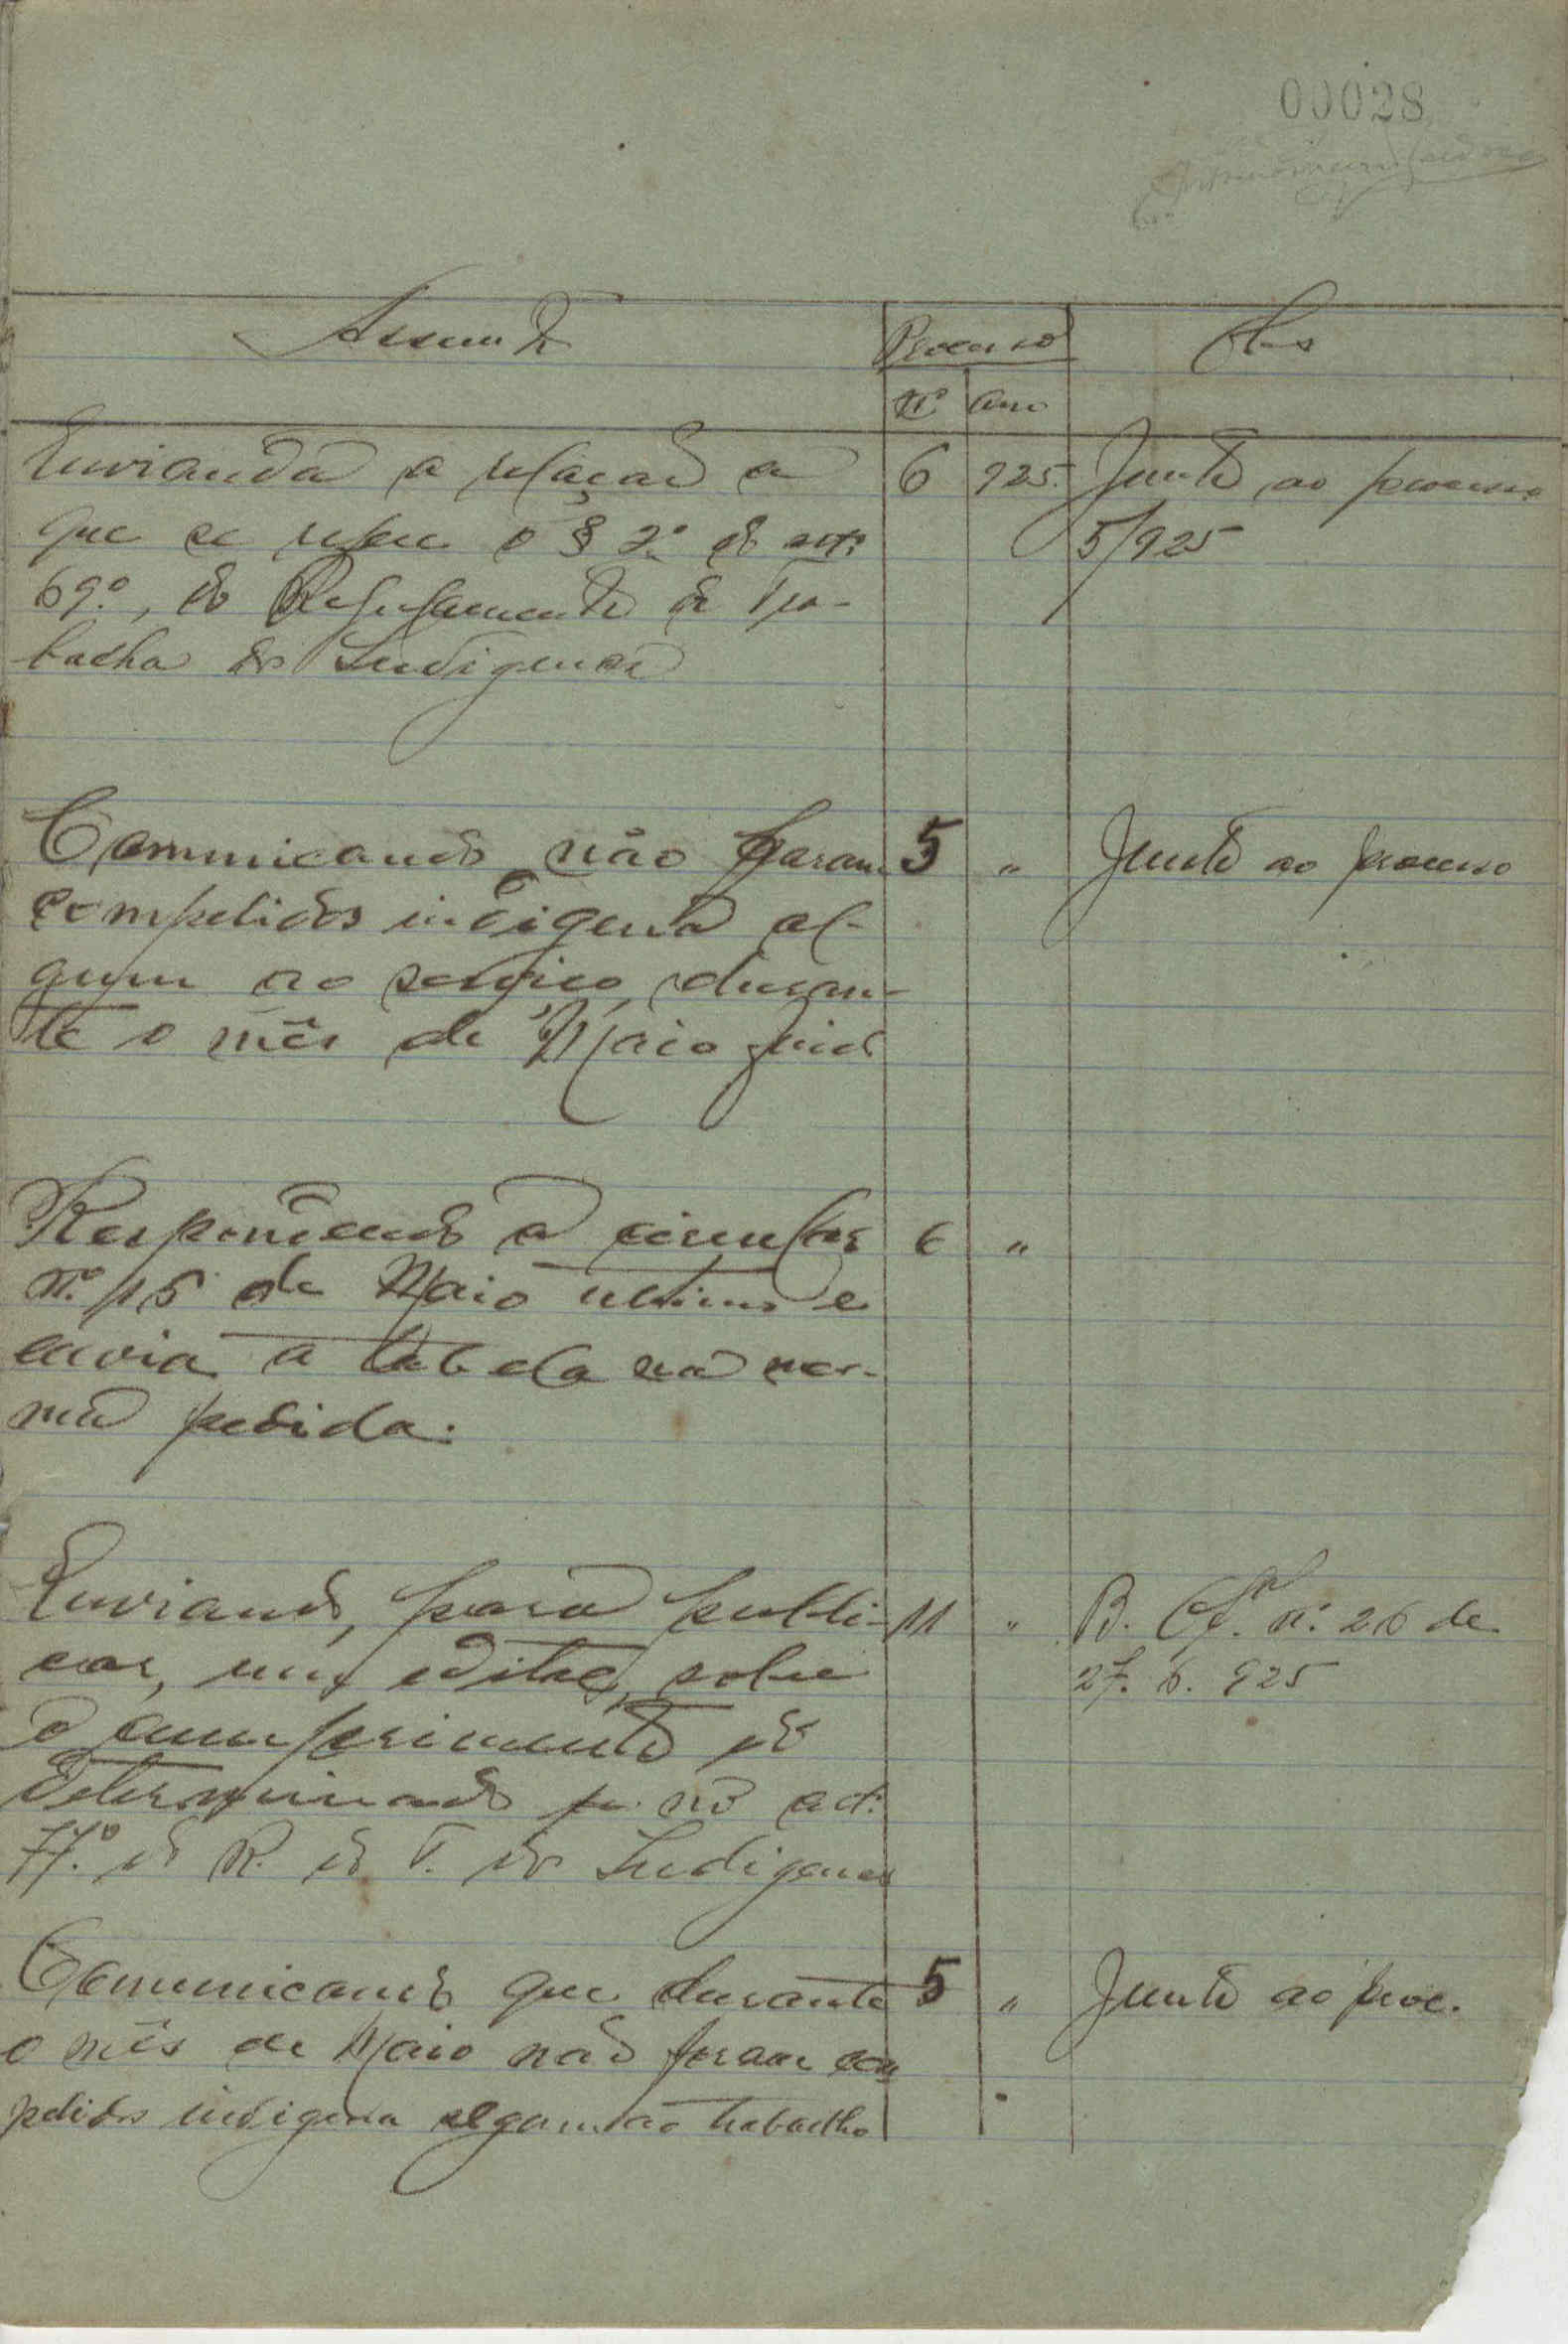 00028
Assunto
Processo
Obs
Nº
Ano
Enviando a relação a
6
925.
Junto ao processo
que se refere o § 2º do artº
5/925
69º, do Regulamento do Tra-
balho dos Indigenas
Comunicando não foram
5
"
Junto ao processo
compelidos indigena al-
gum ao serviço, duran-
te o mês de Maio findo
Respondendo a circular
6
"
nº 15 de Maio ultimo e
envia a tabela na mes-
ma pedida.
Enviando, para publi-
11
"
B. Ofal. nº 26 de
car, um edital, sobre
27. 6. 925
o cumprimento do
determinado no art.
77º do R. do T. dos Indigenas
Comunicando que durante
5
"
Junto ao proc.
o mês de Maio não foram com
pelidos indigena algum ao trabalho